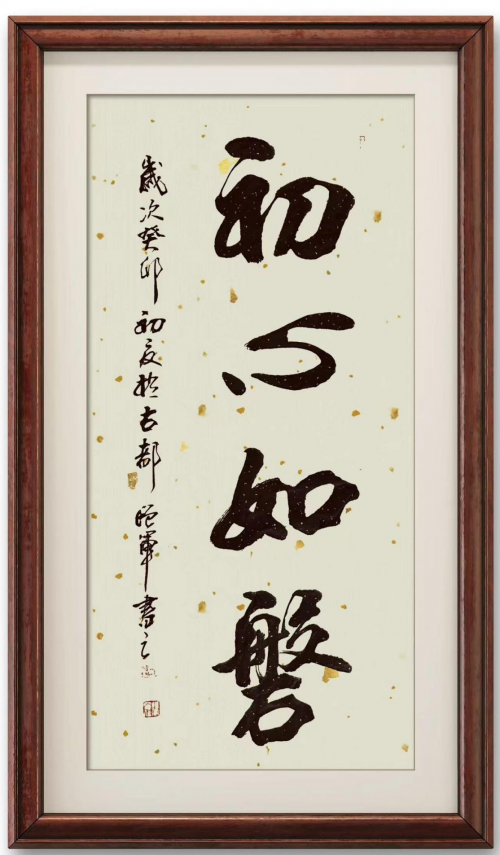 初心如磐
歲次癸卯初夏於古都 军書之